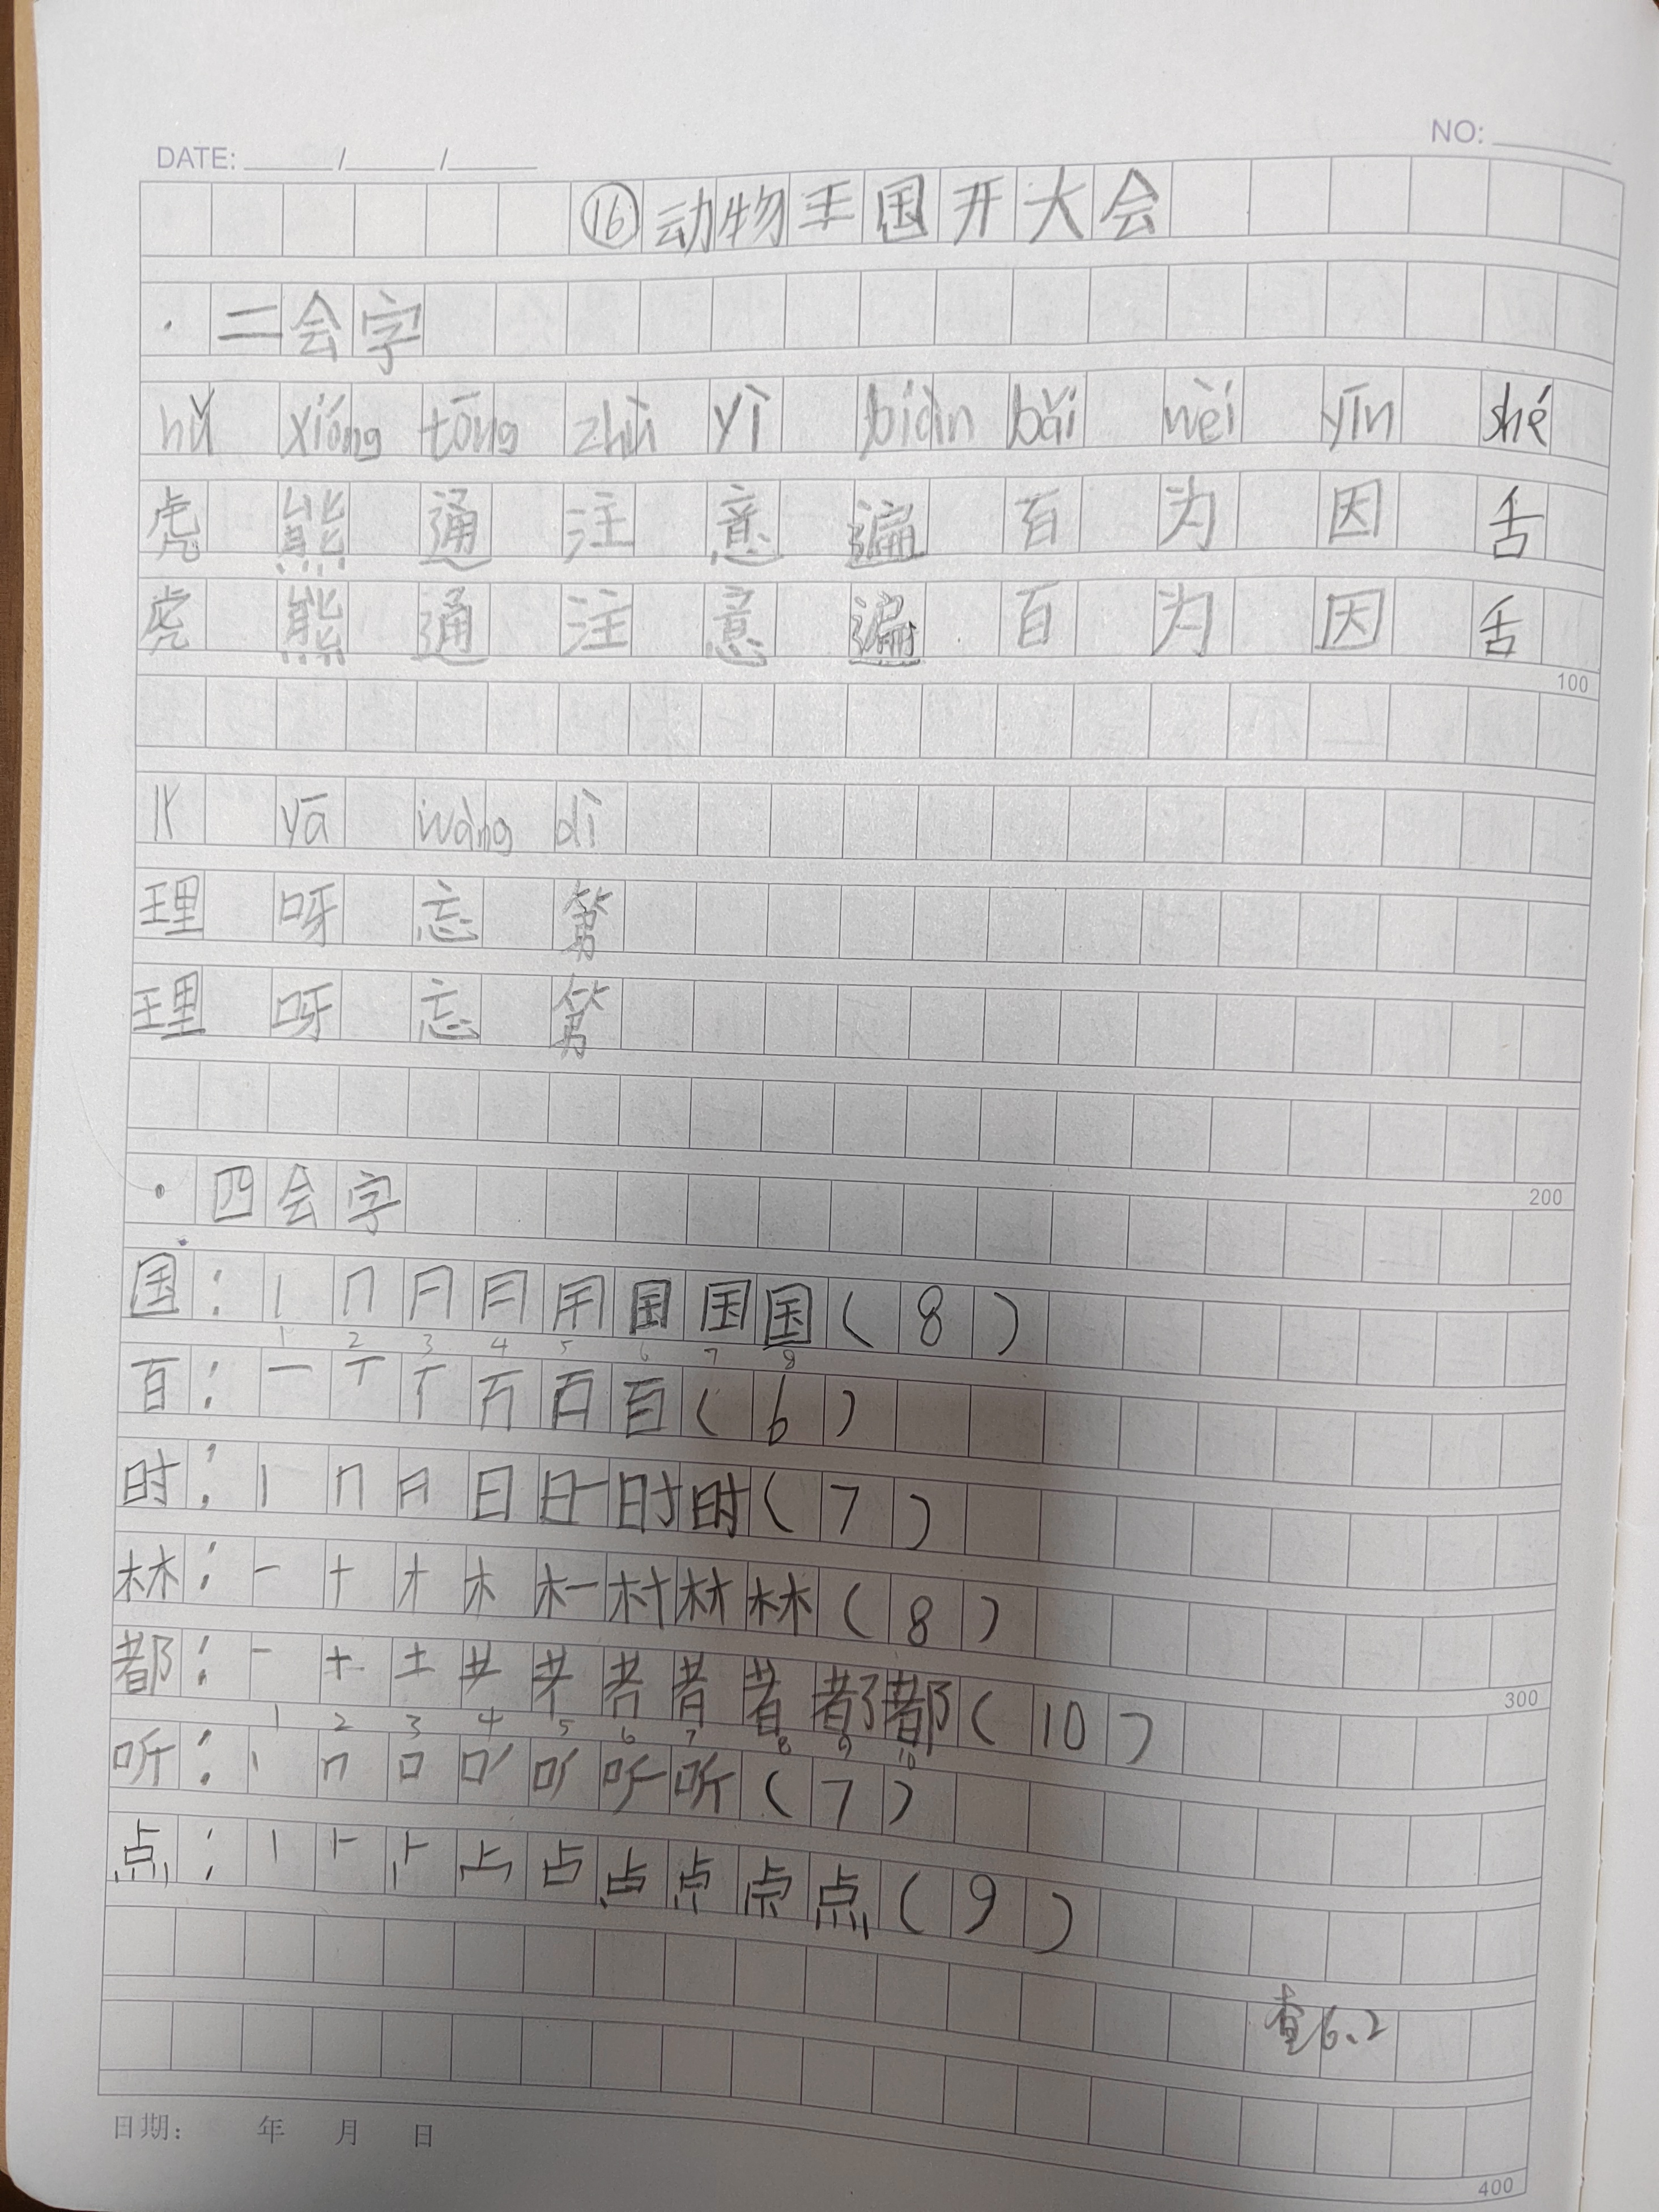 DATE: ____/____/____ NO: ____
⑯动物王国开大会
·二会字
hǔ xióng tōng zhù yì biàn bǎi wèi yīn shé
虎 熊 通 注 意 遍 百 为 因 舌
虎 熊 通 注 意 遍 百 为 因 舌
100
yā wàng dì
理 呀 忘 第
理 呀 忘 第
·四会字
200
国: 丨 冂 国 国 国 (8)
1 2 3 4 5 6 7 8
百: 一 丆 百 百 (6)
时: 丨 冂 日 时 时 (7)
林: 一 十 木 村 林 林 (8)
都: 一 十 土 者 都 都 (10)
300
1 2 3 4 5 6 7 8 9 10
听: 丨 冂 口 听 (7)
点: 丨 卜 占 点 (9)
查6.2
日期: 年 月 日
400